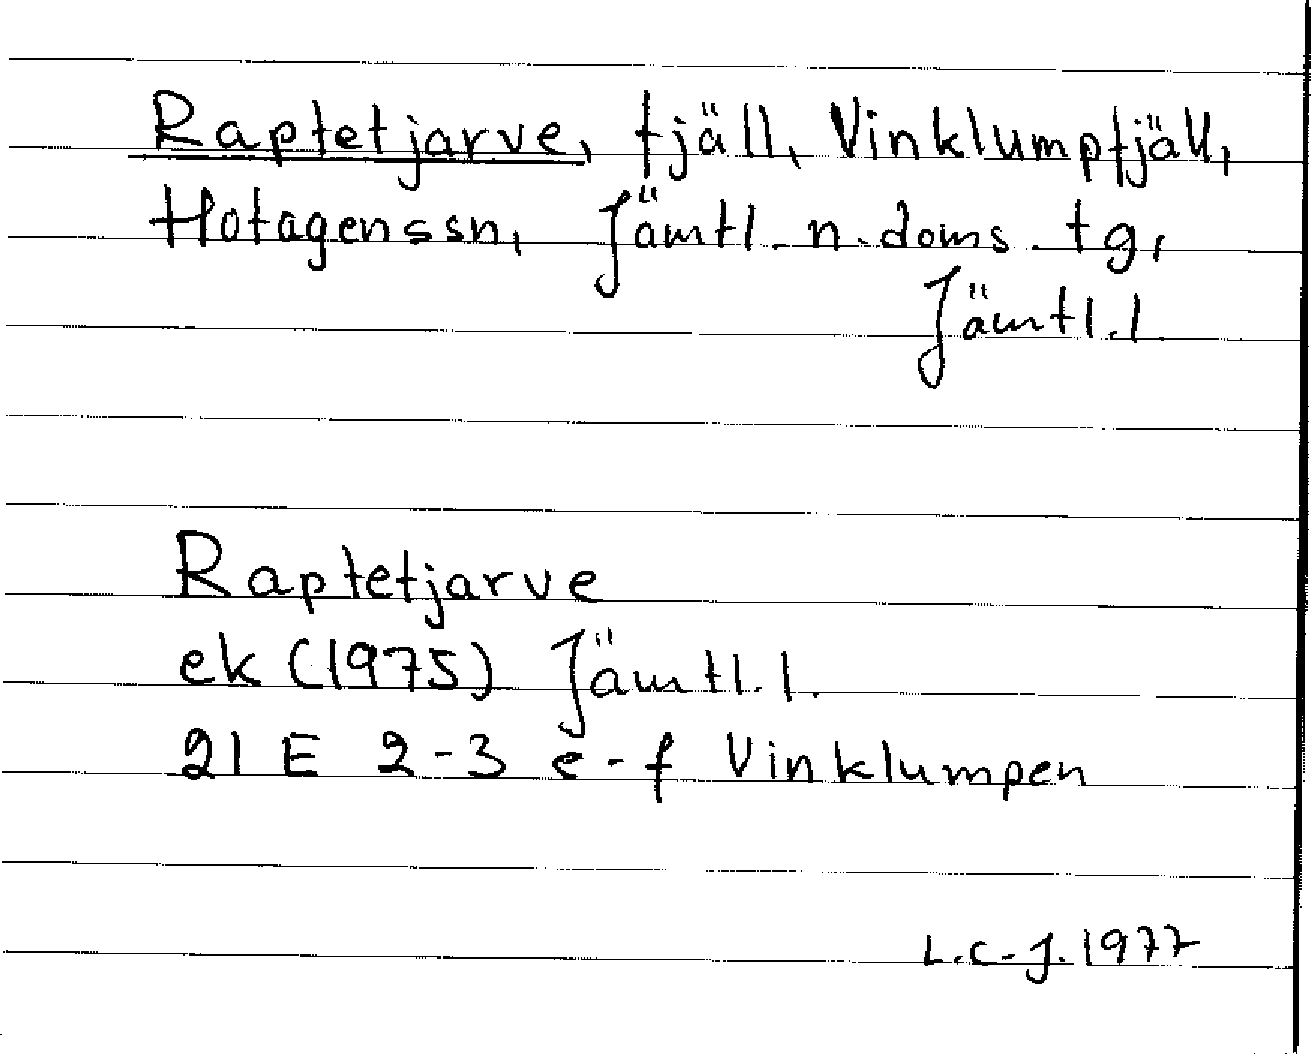 Raptetjarve, fjäll, Vinklumpfjäll,
Hotagens sn, Jämtl. n. doms. tg,
Jämtl. l
Raptetjarve
ek (1975) Jämtl. l.
21 E 2-3 e-f Vinklumpen
L.C-J. 1977